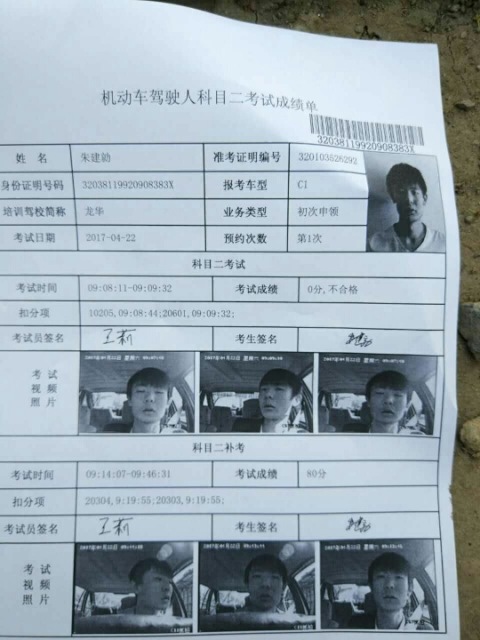 机动车驾驶人科目二考试成绩单
32038119920908383X
姓 名 朱建勍 准考证明编号 320103626292
身份证明号码 32038119920908383X 报考车型 C1
培训驾校简称 龙华 业务类型 初次申领
考试日期 2017-04-22 预约次数 第1次
科目二考试
考试时间 09:08:11-09:09:32 考试成绩 0分,不合格
扣分项 10205,09:08:44;20601,09:09:32;
考试员签名 考生签名
考 试
视 频
照 片
科目二补考
考试时间 09:14:07-09:46:31 考试成绩 80分
扣分项 20304,9:19:55;20303,9:19:55;
考试员签名 考生签名
考 试
视 频
照 片